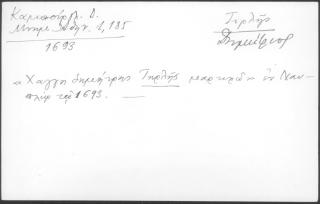 Καμπούρογλ. Δ.
Μνημ. Ἀθην. 1, 185
1693
Τιρλῆς
Δημήτριος
«Χατζη δημήτρης Τιρλῆς μαρτυρῶ» ἐν Ναυ-
πλίῳ τῷ 1693.